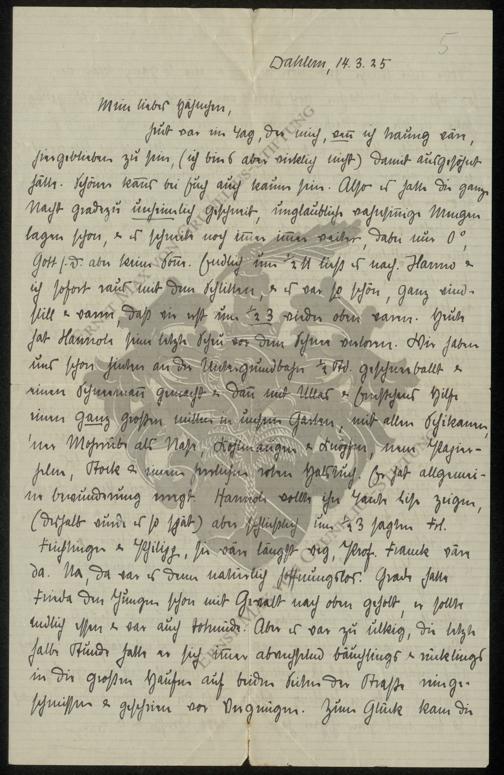 5
Dahlem, 14.3.25
Mein lieber Hähnchen,
heut war ein Tag, der mich, wenn ich traurig wär,
hiergeblieben zu sein, (ich bin's aber wirklich nicht) damit ausgesöhnt
hätte. Schöner kann's bei Euch auch kaum sein. Also es hatte die ganze
Nacht geradezu unheimlich geschneit, unglaubliche wahnsinnige Mengen
lagen schon, & es schneite noch immer immer weiter, dabei nur 0°,
Gott s. D. aber keine Sonne. Endlich um ½ 11 ließ es nach. Hanno &
ich sofort raus mit dem Schlitten, & es war so schön, ganz wind-
still & warm daß wir erst um ½ 3 wieder oben waren. Heute
hat Hannole seine letzte Scheu vor dem Schnee verloren. Wir haben
uns schon hinten an der Untergrundbahn ½ Std. geschneeballt &
einen Schneemann gemacht & dann mit Ullas & Hilfe
einen ganz großen mitten in unserm Garten, mit allen Schikanen,
'ner Mohrrübe als Nase, & Knöppen, nem
Stock & meinem herrlichen roten Halstuch. Er hat allgemei-
ne Bewunderung erregt. Hannole wollte ihn Tante Lise zeigen,
(deshalb wurde es so spät) aber schließlich um ½ 3 sagten Frl.
& Philipp, sie wär längst weg, Prof. Franck wäre
da. Na, da war es denn natürlich hoffnungslos. Grade hatte
Frieda den Jungen schon mit Gewalt nach oben geholt, er sollte
endlich essen & war auch todmüde. Aber es war zu ulkig, die letzte
halbe Stunde hatte er sich immer abwechselnd bäuchlings & rücklings
in die großen Haufen auf beiden Seiten der Straße reinge-
schmissen & geschrien vor Vergnügen. Zum Glück kam die
ERNST MAX VON GRUNELIUS-STIFTUNG